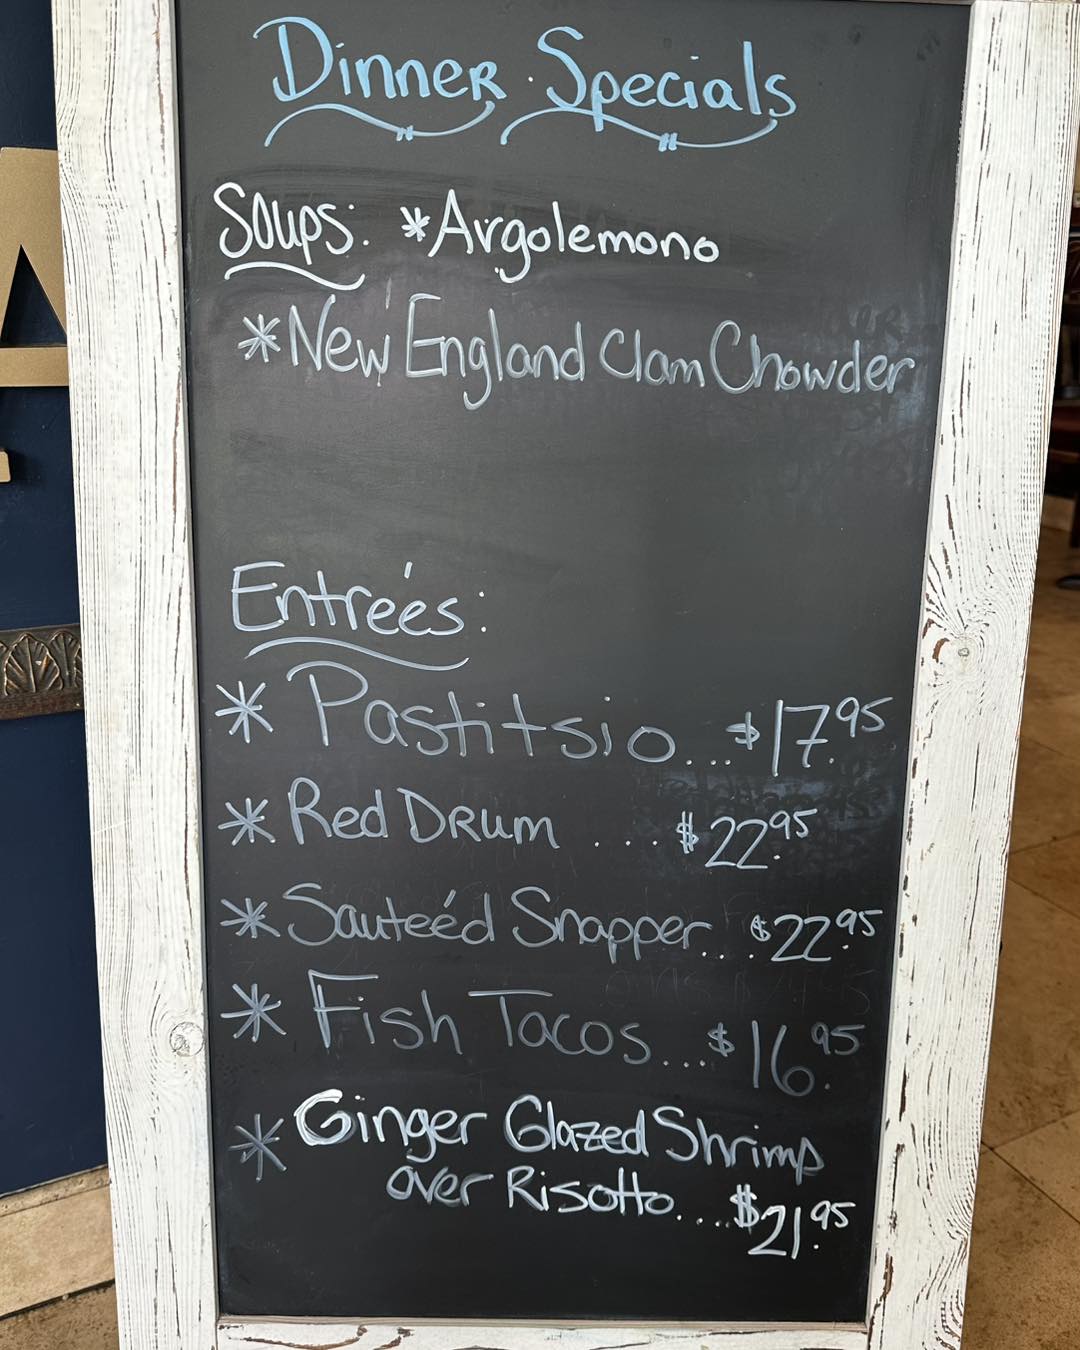 Dinner Specials
Soups: *Argolemono
*New England Clam Chowder
Entreés:
* Pastitsio...$17.95
* Red Drum ....$22.95
* Sauteéd Snapper...$22.95
* Fish Tacos....$16.95
* Ginger Glazed Shrimp
over Risotto....$21.95